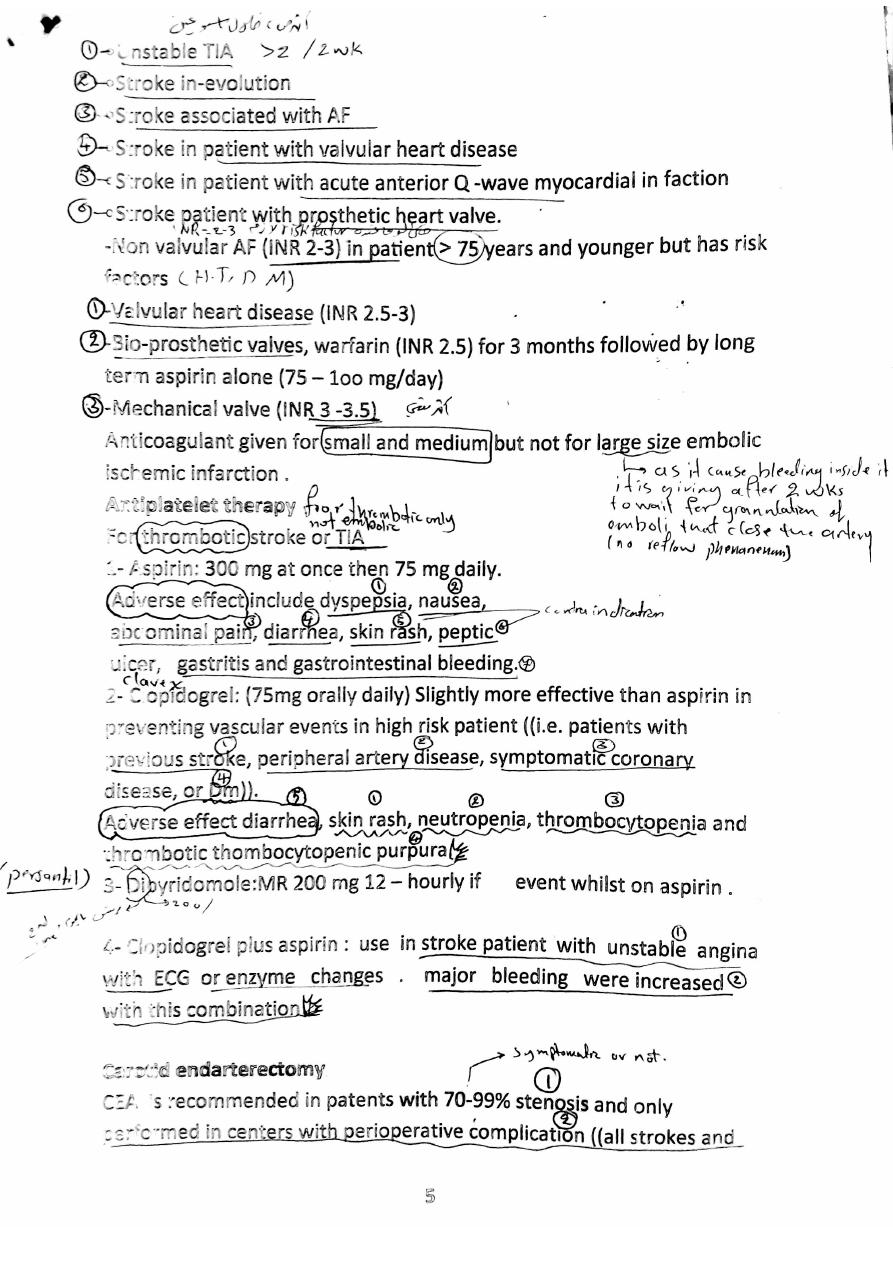 ①- Unstable TIA >2 /2wk
②- Stroke in-evolution
③- Stroke associated with AF
④- Stroke in patient with valvular heart disease
⑤- Stroke in patient with acute anterior Q -wave myocardial in faction
⑥- Stroke patient with prosthetic heart valve.
INR-2-3 risk factor
-Non valvular AF (INR 2-3) in patient > 75 years and younger but has risk
factors (H.T, D M)
①-Valvular heart disease (INR 2.5-3)
②-Bio-prosthetic valves, warfarin (INR 2.5) for 3 months followed by long
term aspirin alone (75 – 1oo mg/day)
③-Mechanical valve (INR 3 -3.5)
Anticoagulant given for small and medium but not for large size embolic
ischemic infarction .
↳ as it cause bleeding inside it
it is giving after 2 wks
to wait for granulation of
emboli that close the artery
(no reflow phenanenum)
Antiplatelet therapy for thrombotic only
not embolic
For thrombotic stroke or TIA
1- Aspirin: 300 mg at once then 75 mg daily.
① ②
Adverse effect include dyspepsia, nausea,
contraindication
③ ④ ⑤
abcominal pain, diarrhea, skin rash, peptic ⑥
ulcer, gastritis and gastrointestinal bleeding.⑦
Clavex
2- Clopidogrel: (75mg orally daily) Slightly more effective than aspirin in
preventing vascular events in high risk patient ((i.e. patients with
① ② ③
previous stroke, peripheral artery disease, symptomatic coronary
④
disease, or Dm)).
⑤ ① ② ③
Adverse effect diarrhea, skin rash, neutropenia, thrombocytopenia and
④
thrombotic thombocytopenic purpura
(persantil)
3- Dibyridomole:MR 200 mg 12 – hourly if event whilst on aspirin .
→200/
①
4- Clopidogrel plus aspirin : use in stroke patient with unstable angina
with ECG or enzyme changes . major bleeding were increased ②
with this combination
→ symptomatic or not.
Carotid endarterectomy
①
CEA is recommended in patents with 70-99% stenosis and only
②
performed in centers with perioperative complication ((all strokes and
5